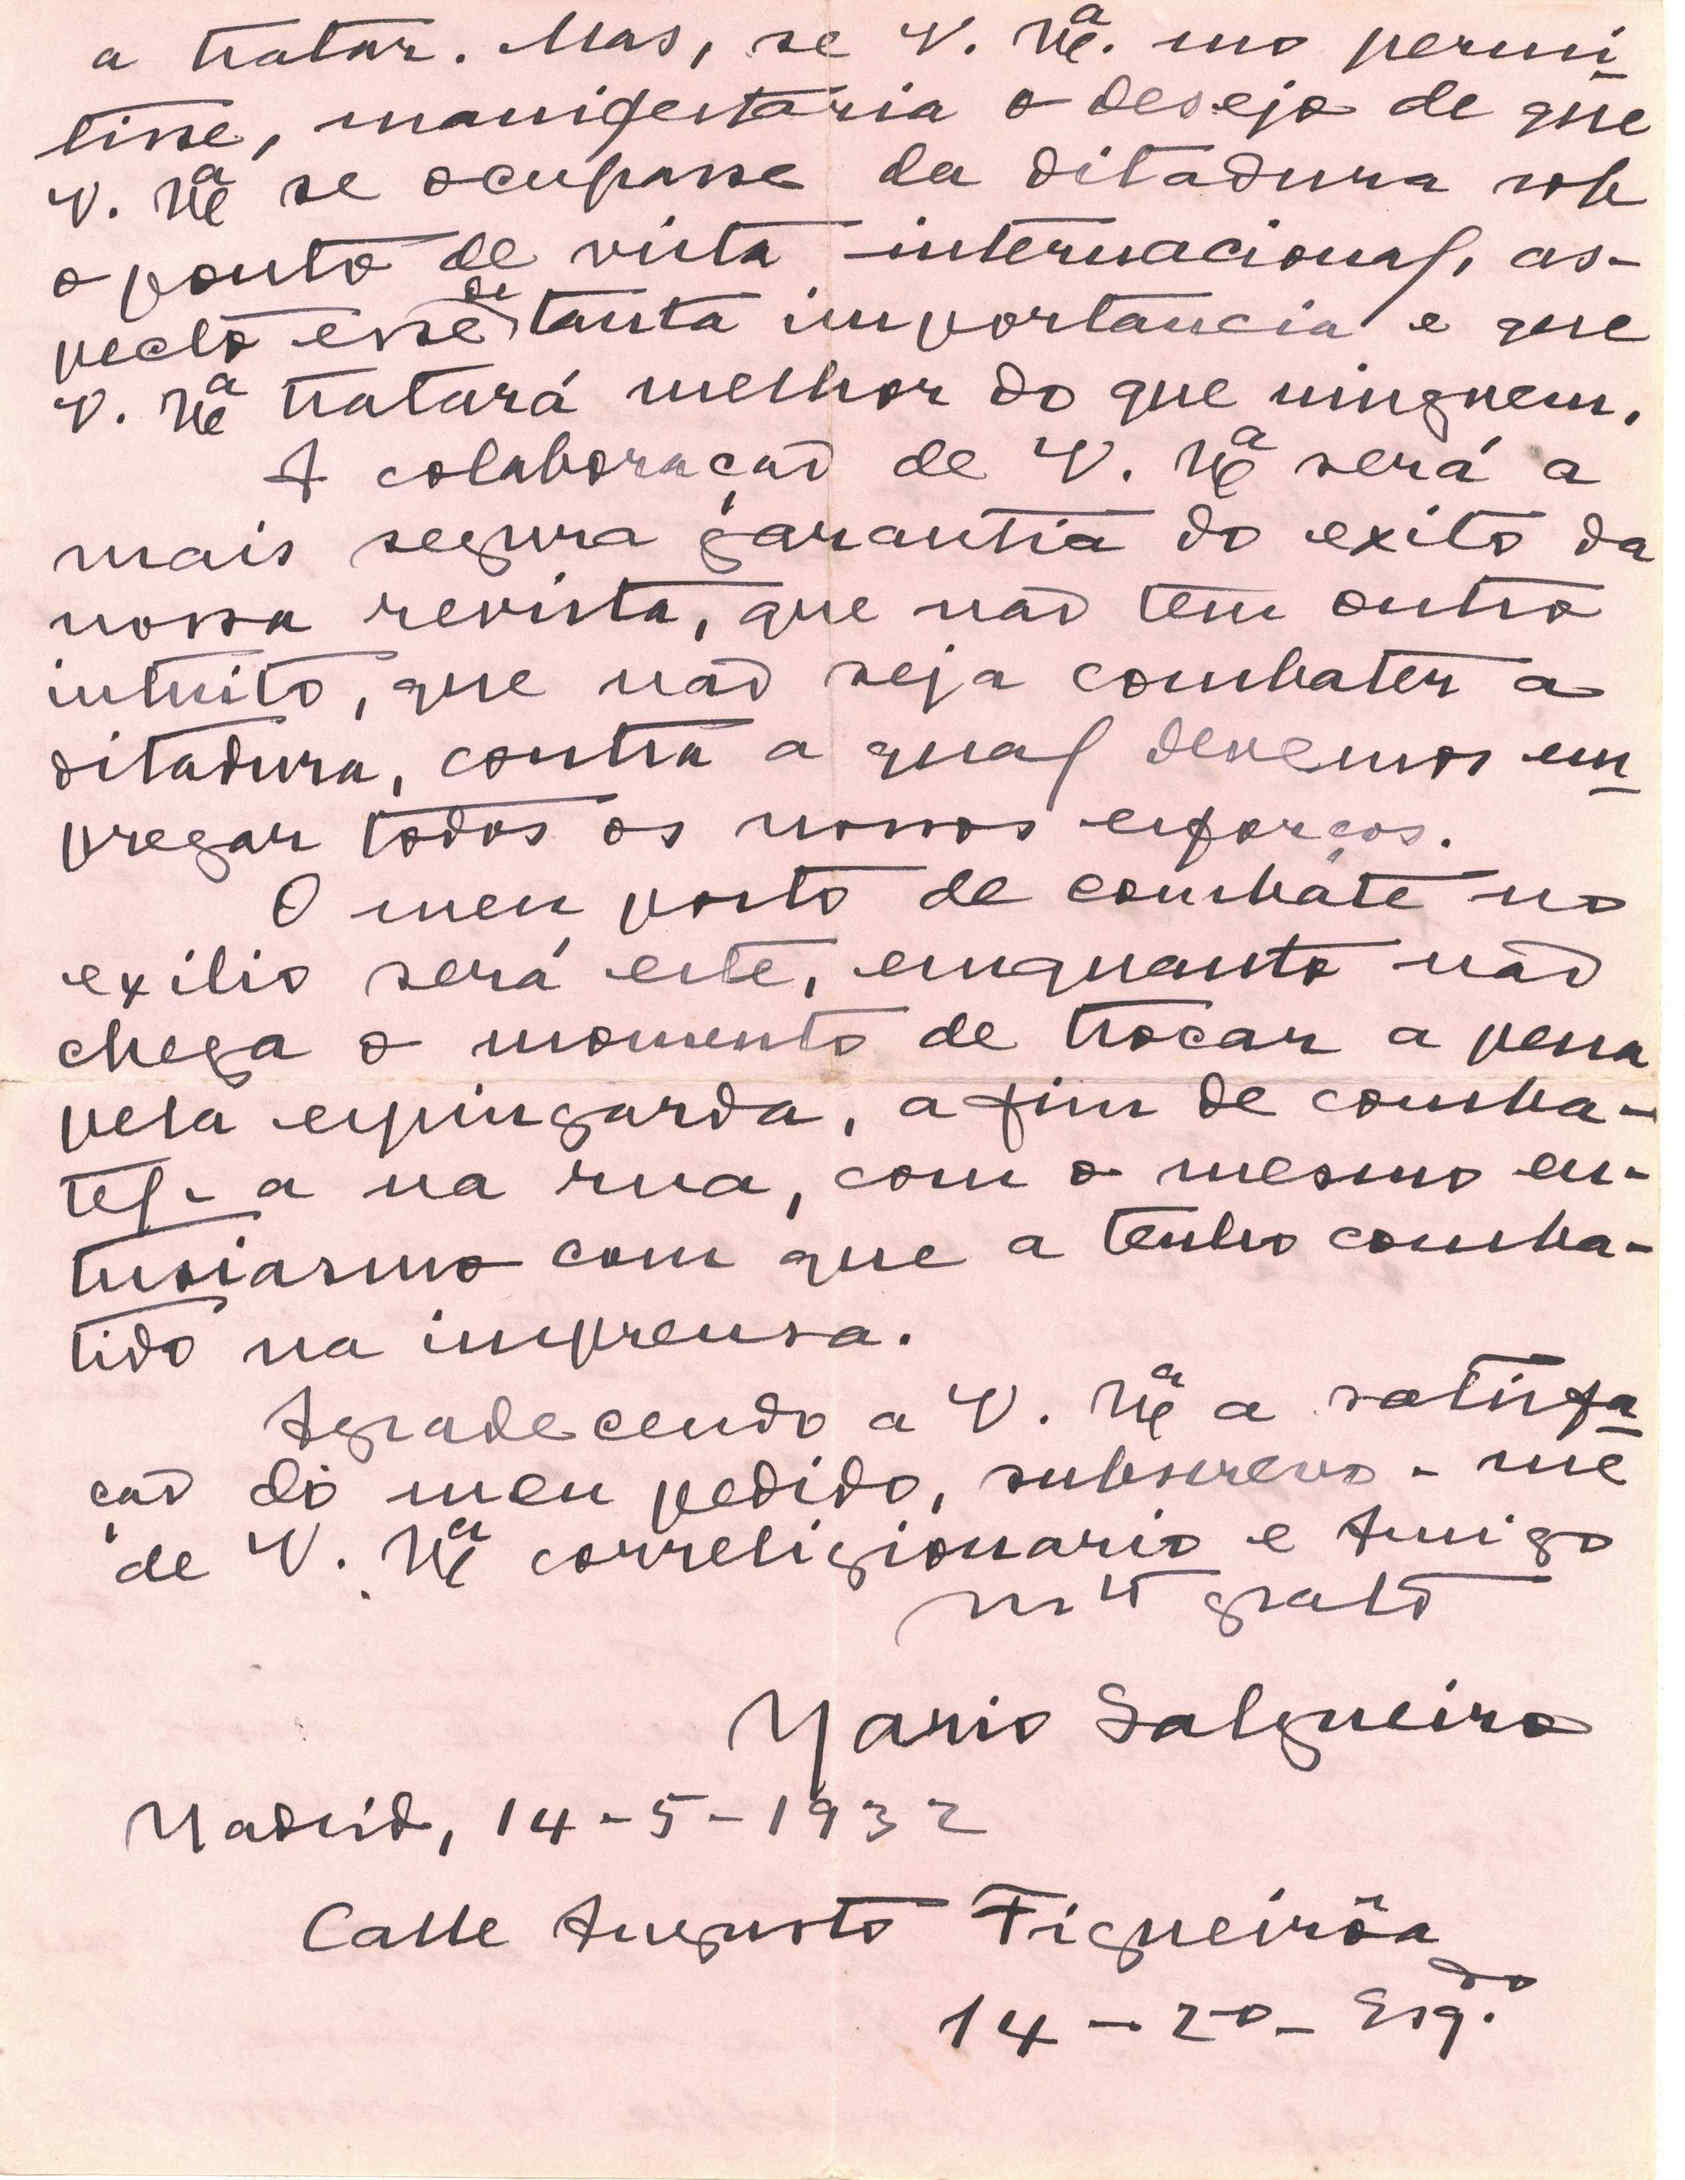 a tratar. Mas, se V. Ex.ª mo permi-
tisse, manifestaria o desejo de que
V. Exª se ocupasse da ditadura sob
o ponto de vista internacional, as-
pecto esse de tanta importancia e que
V. Exª tratará melhor do que ninguem.
A colaboração de V. Exª será a
mais segura garantia do exito da
nossa revista, que não tem outro
intuito, que não seja combater a
ditadura, contra a qual devemos em-
pregar todos os nossos esforços.
O meu posto de combate no
exilio será este, emquanto não
chega o momento de trocar a pena
pela espingarda, afim de comba-
tel-a na rua, com o mesmo en-
tusiasmo com que a tenho comba-
tido na imprensa.
Agradecendo a V. Exª a satisfa-
ção do meu pedido, subscrevo-me
de V. Exª correligionario e Amigo
mtº grato
Mario Salgueiro
Madrid, 14-5-1932
Calle Augusto Figueirôa
14-2º- Esq.do